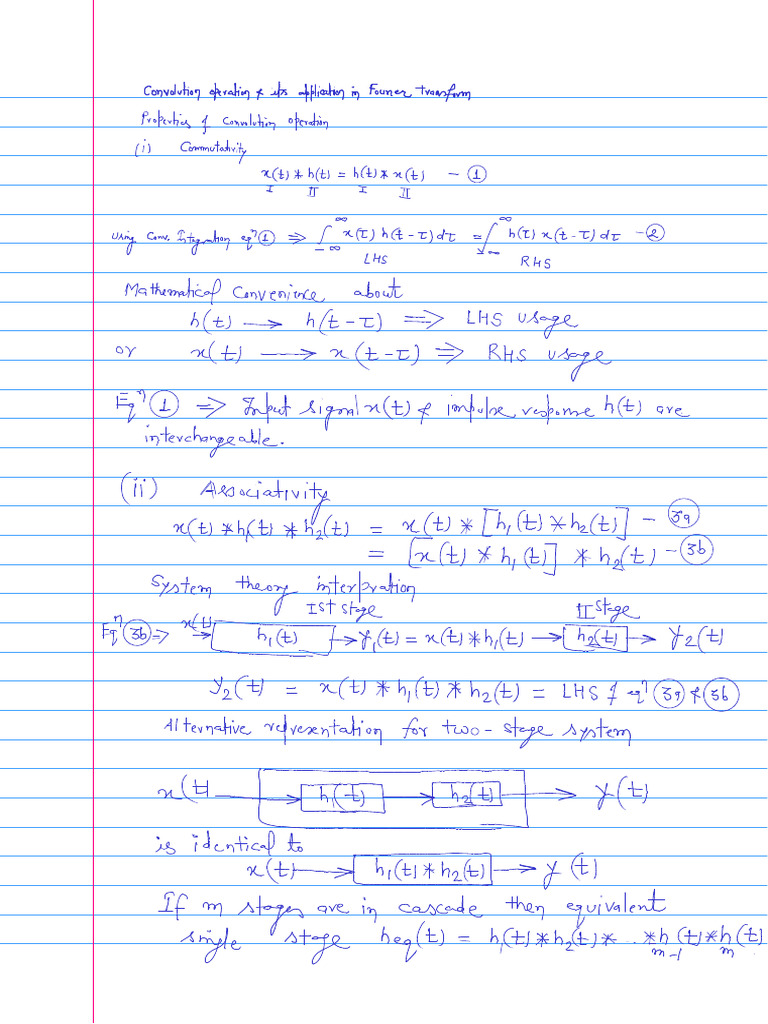 Convolution operation & its application in Fourier transform
Properties of convolution operation
(i) Commutativity
x(t) * h(t) = h(t) * x(t) — ①
I II I II
Using Conv. Integration eqⁿ ① ⇒ ∫_{-∞}^{∞} x(τ) h(t-τ) dτ = ∫_{-∞}^{∞} h(τ) x(t-τ) dτ — ②
LHS RHS
Mathematical Convenience about
h(t) → h(t-τ) ⇒ LHS usage
or x(t) → x(t-τ) ⇒ RHS usage
Eqⁿ ① ⇒ Input signal x(t) & impulse response h(t) are
interchangeable.
(ii) Associativity
x(t) * h₁(t) * h₂(t) = x(t) * [h₁(t) * h₂(t)] — (3a)
= [x(t) * h₁(t)] * h₂(t) — (3b)
System theory interpration
Ist stage II stage
Eqⁿ (3b) ⇒ x(t) → h₁(t) → y₁(t) = x(t) * h₁(t) → h₂(t) → y₂(t)
y₂(t) = x(t) * h₁(t) * h₂(t) = LHS of eqⁿ (3a) & (3b)
Alternative representation for two-stage system
x(t → h₁(t) → h₂(t) → y(t)
is identical to
x(t) → h₁(t) * h₂(t) → y(t)
If m stages are in cascade then equivalent
single stage heq(t) = h₁(t) * h₂(t) * ... * h_{m-1}(t) * h_m(t)